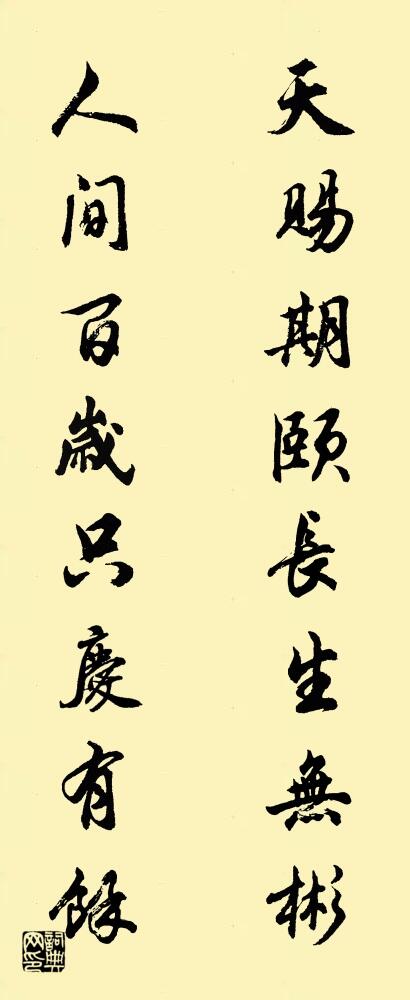 天賜期頤長生無彬
人間百歲只慶有餘
詞典網印